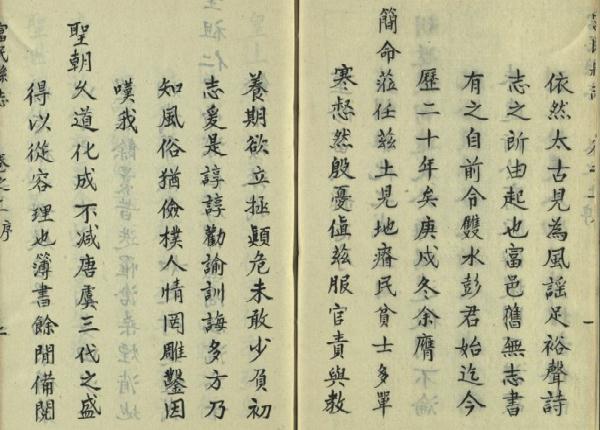 依然太古見為風謡足裕聲詩
志之所由起也富邑舊無志書
有之自前令雙水彭君始迄今
歷二十年矣庚戌冬余膺
簡命蒞任兹土見地瘠民貧士多單
寒惄然殷憂值兹服官責與教
養期欲立拯顛危未敢少負初
志爰是諄諄勸諭訓誨多方乃
知風俗猶儉樸人情罔雕鑿因
嘆我
聖朝久道化成不减唐虞三代之盛
得以從容理也簿書餘閒備閱
富民縣志
序